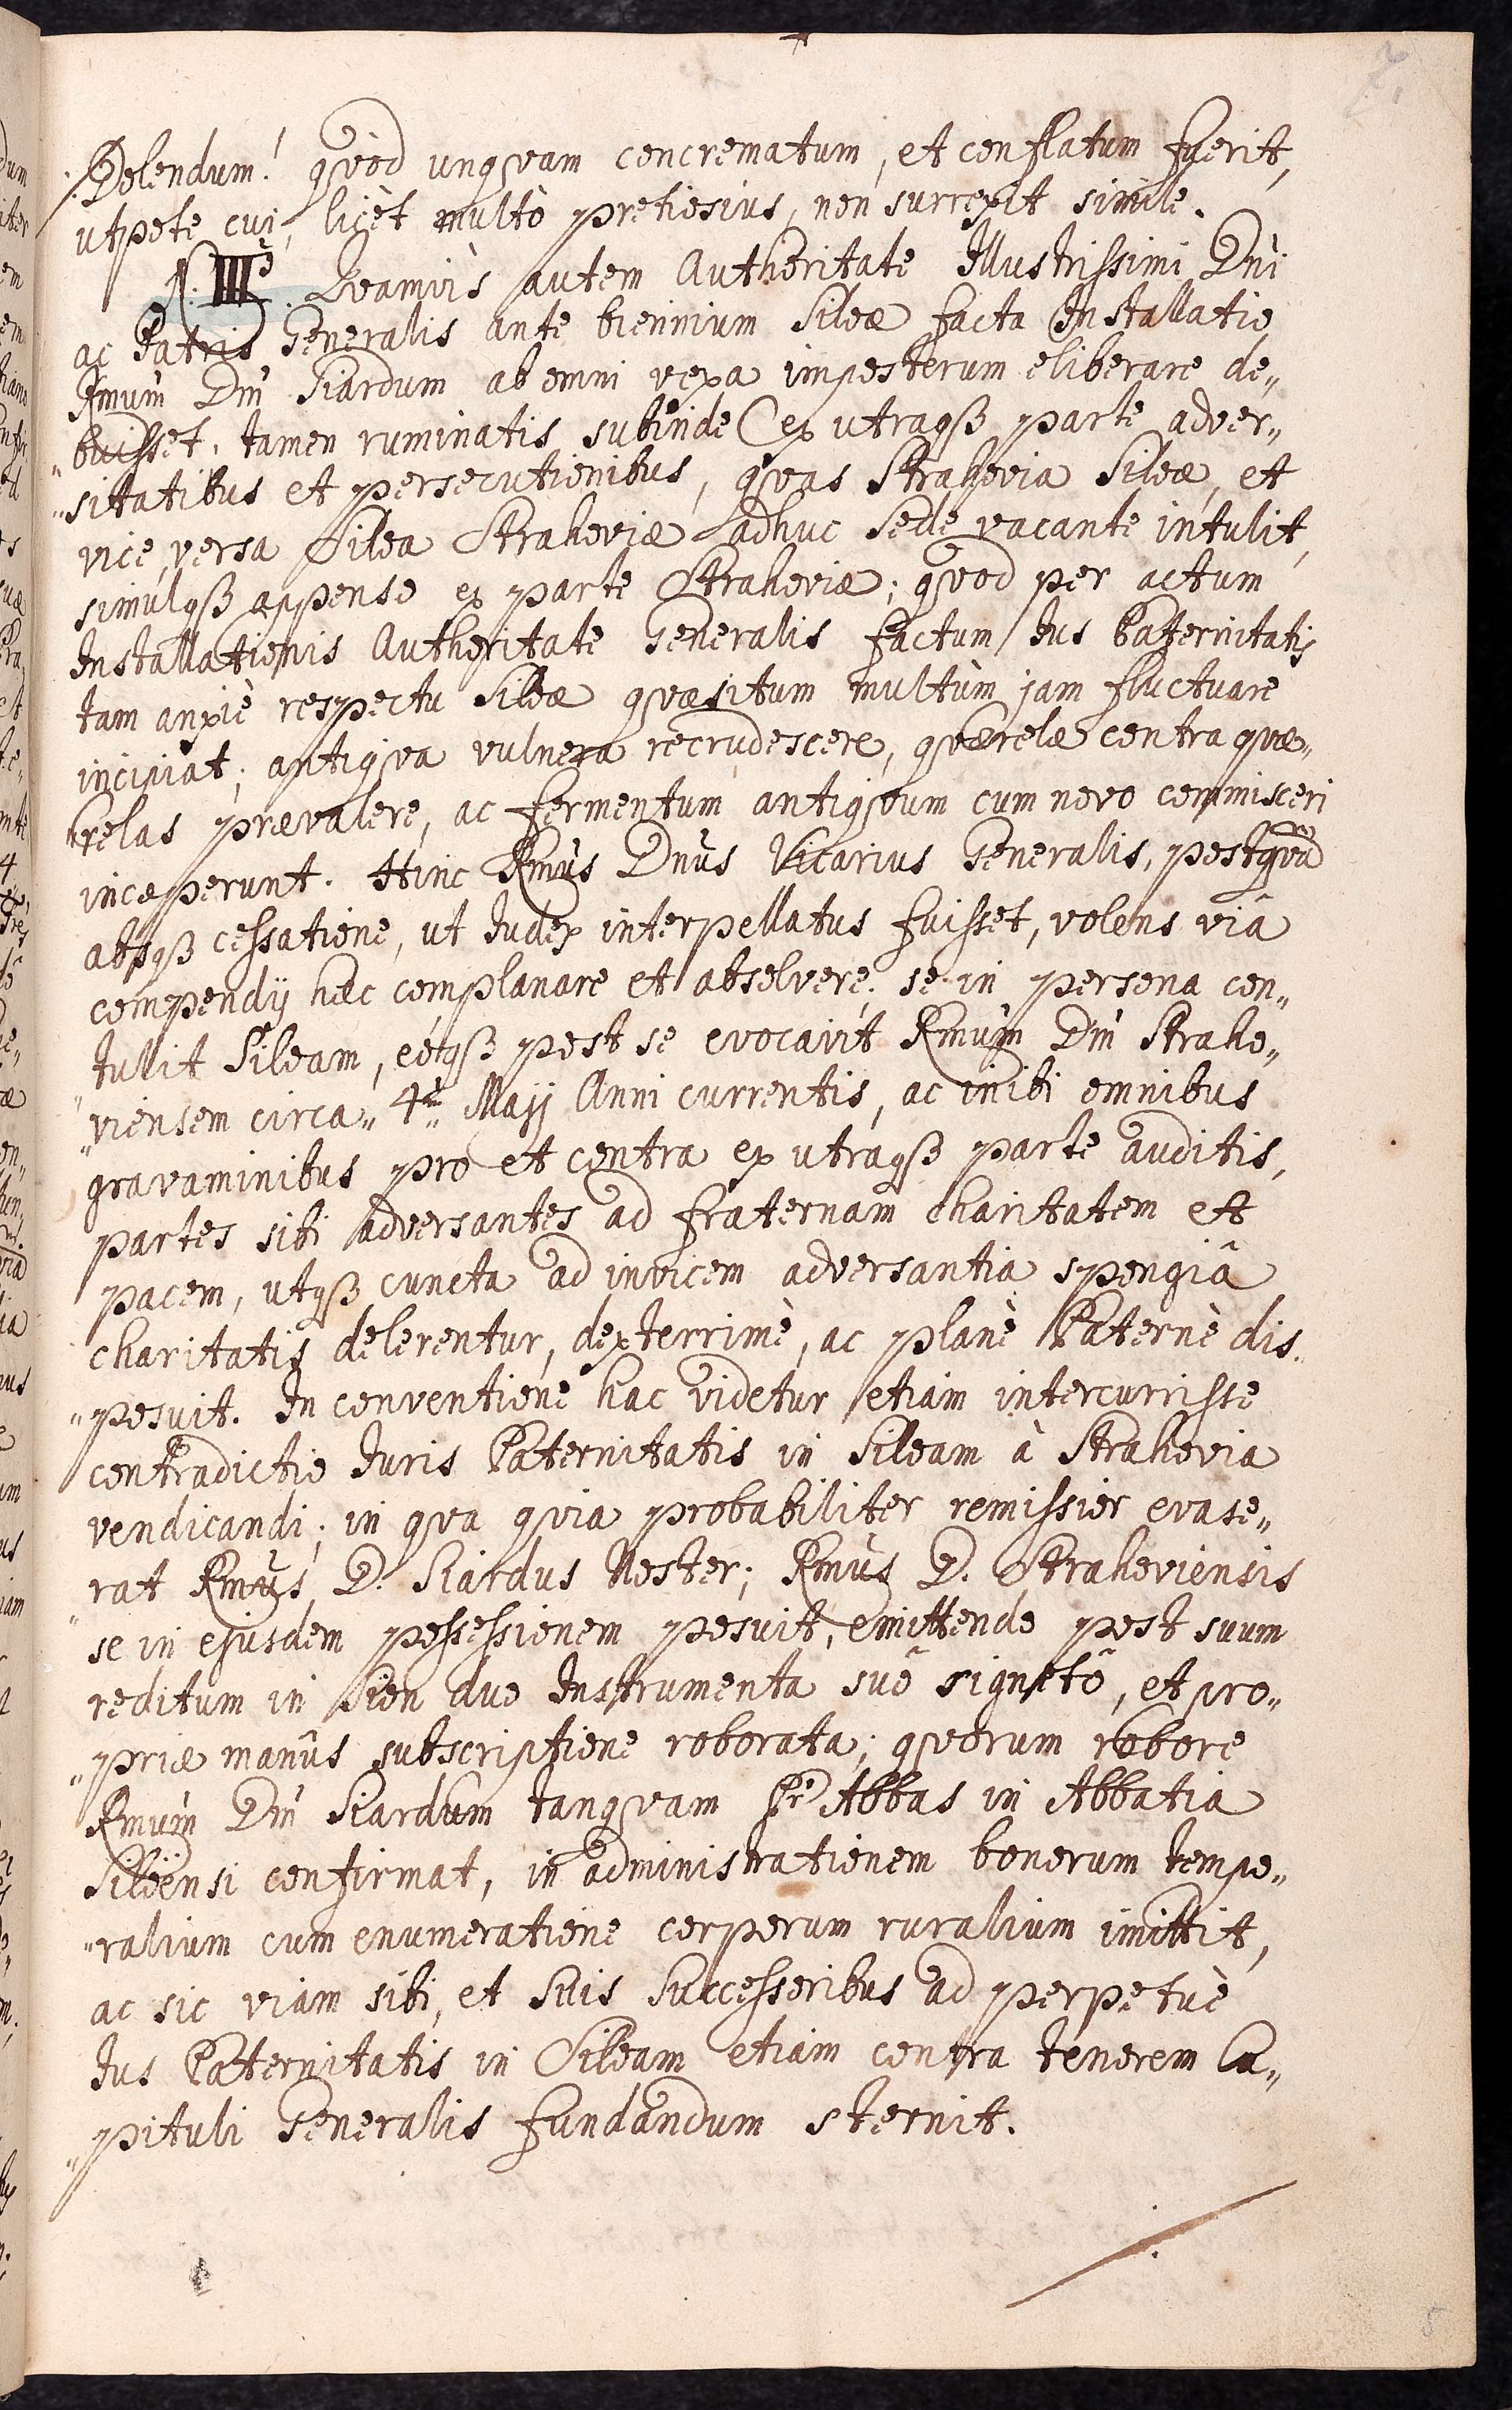 Dolendum! qvòd unqvam concrematum, et conflatum fuerit,
utpote cui, licet multò pretiosius, non surrexit simile.
N. III.º Qvamvis autem Authoritate Illustrissimi Dn̄i
ac Patris Generalis ante biennium Siloæ facta Installatio
Rmūm Dn̄ Siardum ab omni vexa imposterum eliberare de„
„buisset. tamen ruminatis subinde (ex utraqꝫ parte adver„
„sitatibus et persecutionibus, qvas Strahovia Siloæ, et
vice versa Siloa Strahoviæ) adhuc Sede vacante intulit,
simulqꝫ appenso ex parte Strahoviæ; qvod per actum
Installationis Authoritate Generalis factum Jus Paternitatis
tam anxiè respectu Siloæ qvæsitum multùm jam fluctuare
incipiat; antiqva vulnera recrudescere, qværelæ contra qvæ„
„relas prævalere, ac fermentum antiqvum cum novo commisceri
inceperunt. Hinc Rmūs Dnūs Vicarius Generalis, postqvā
absqꝫ cessatione, ut Judex interpellatus fuisset, volens viâ
compendij hæc complanare et absolvere; se in persona con„
„tulit Siloam, eóqꝫ post se evocavit Rmūm Dn̄ Straho„
„viensem circa 4ᵗᵃ Maji Anni currentis, ac inibi omnibus
gravaminibus pro et contra ex utraqꝫ parte auditis,
partes sibi adversantes ad fraternam charitatem et
pacem, utqꝫ cuncta ad invicem adversantia spongiâ
charitatis delerentur, dexterrimè, ac planè Paternè dis„
„posuit. In conventione hac videtur etiam intercurrisse
contradictio Juris Paternitatis in Siloam à Strahovia
vendicandi; in qva qvia probabiliter remissior evase„
„rat Rmūs D. Siardus Noster; Rmūs D. Strahoviensis
se in ejusdem possessionem posuit, emittendo post suum
reditum in Sion duo Instrumenta suô signetô, et pro„
„priæ manûs subscriptione roborata; qvorum robore
Rmūm Dn̄ Siardum tanqvam Pr Abbas in Abbatia
Siloënsi confirmat, in administrationem bonorum tempo„
„ralium cum enumeratione corporum ruralium imittit,
ac sic viam sibi, et Suis Successoribus ad perpetuò
Jus Paternitatis in Siloam etiam contra tenorem Ca„
„pituli Generalis fundandum sternit.
5